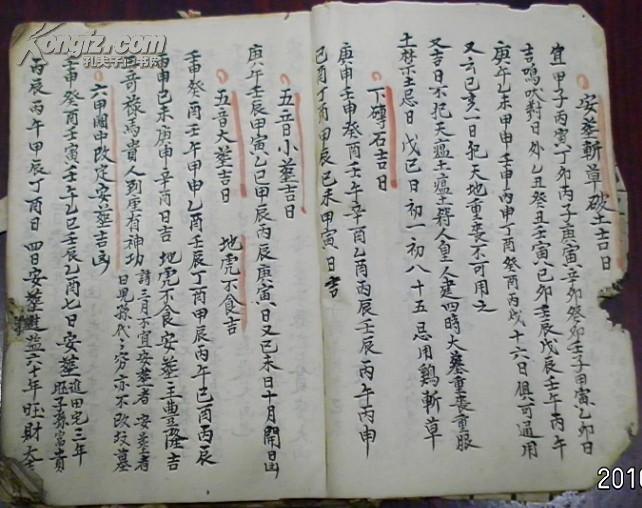 安葬斬草破土吉日
宜甲子丙寅丁卯丙子庚寅辛卯癸卯壬子甲寅乙卯日
吉鳴吠對日外乙丑癸丑壬寅己卯壬辰戊辰壬午丙午
庚午乙未甲申壬申丙申丁酉癸酉丙戌十六日俱可通用
又云己亥一日犯天地重喪不可用之
又吉日不犯天瘟土瘟土
土禁土忌日戊巳日初一初八十五忌用鷄斬草
下磚石吉日
庚申壬申癸酉壬午辛酉乙酉丙辰壬辰丙午丙申
己酉丁酉甲辰己未甲寅日吉
五音小葬吉日
庚午壬辰甲寅乙巳甲辰丙辰庚寅日又己未日十月開日凶
五音大葬吉日 地虎不食吉
壬申癸酉壬午甲申乙酉壬辰丁酉甲辰丙午己酉丙辰
丙申己未庚申辛酉日吉 地虎不食安葬主豊隆吉
奇祿馬貴人到座有神功
詩三月不宜安葬者 安葬者
六甲圖中改定安葬吉凶
壬申癸酉壬寅壬午乙巳壬辰乙酉七日安葬進田宅三年
子孫富貴
丙辰丙午甲辰丁酉日四日安葬進益六十年旺財大吉
Kongfz.com
孔夫子旧书网
2010